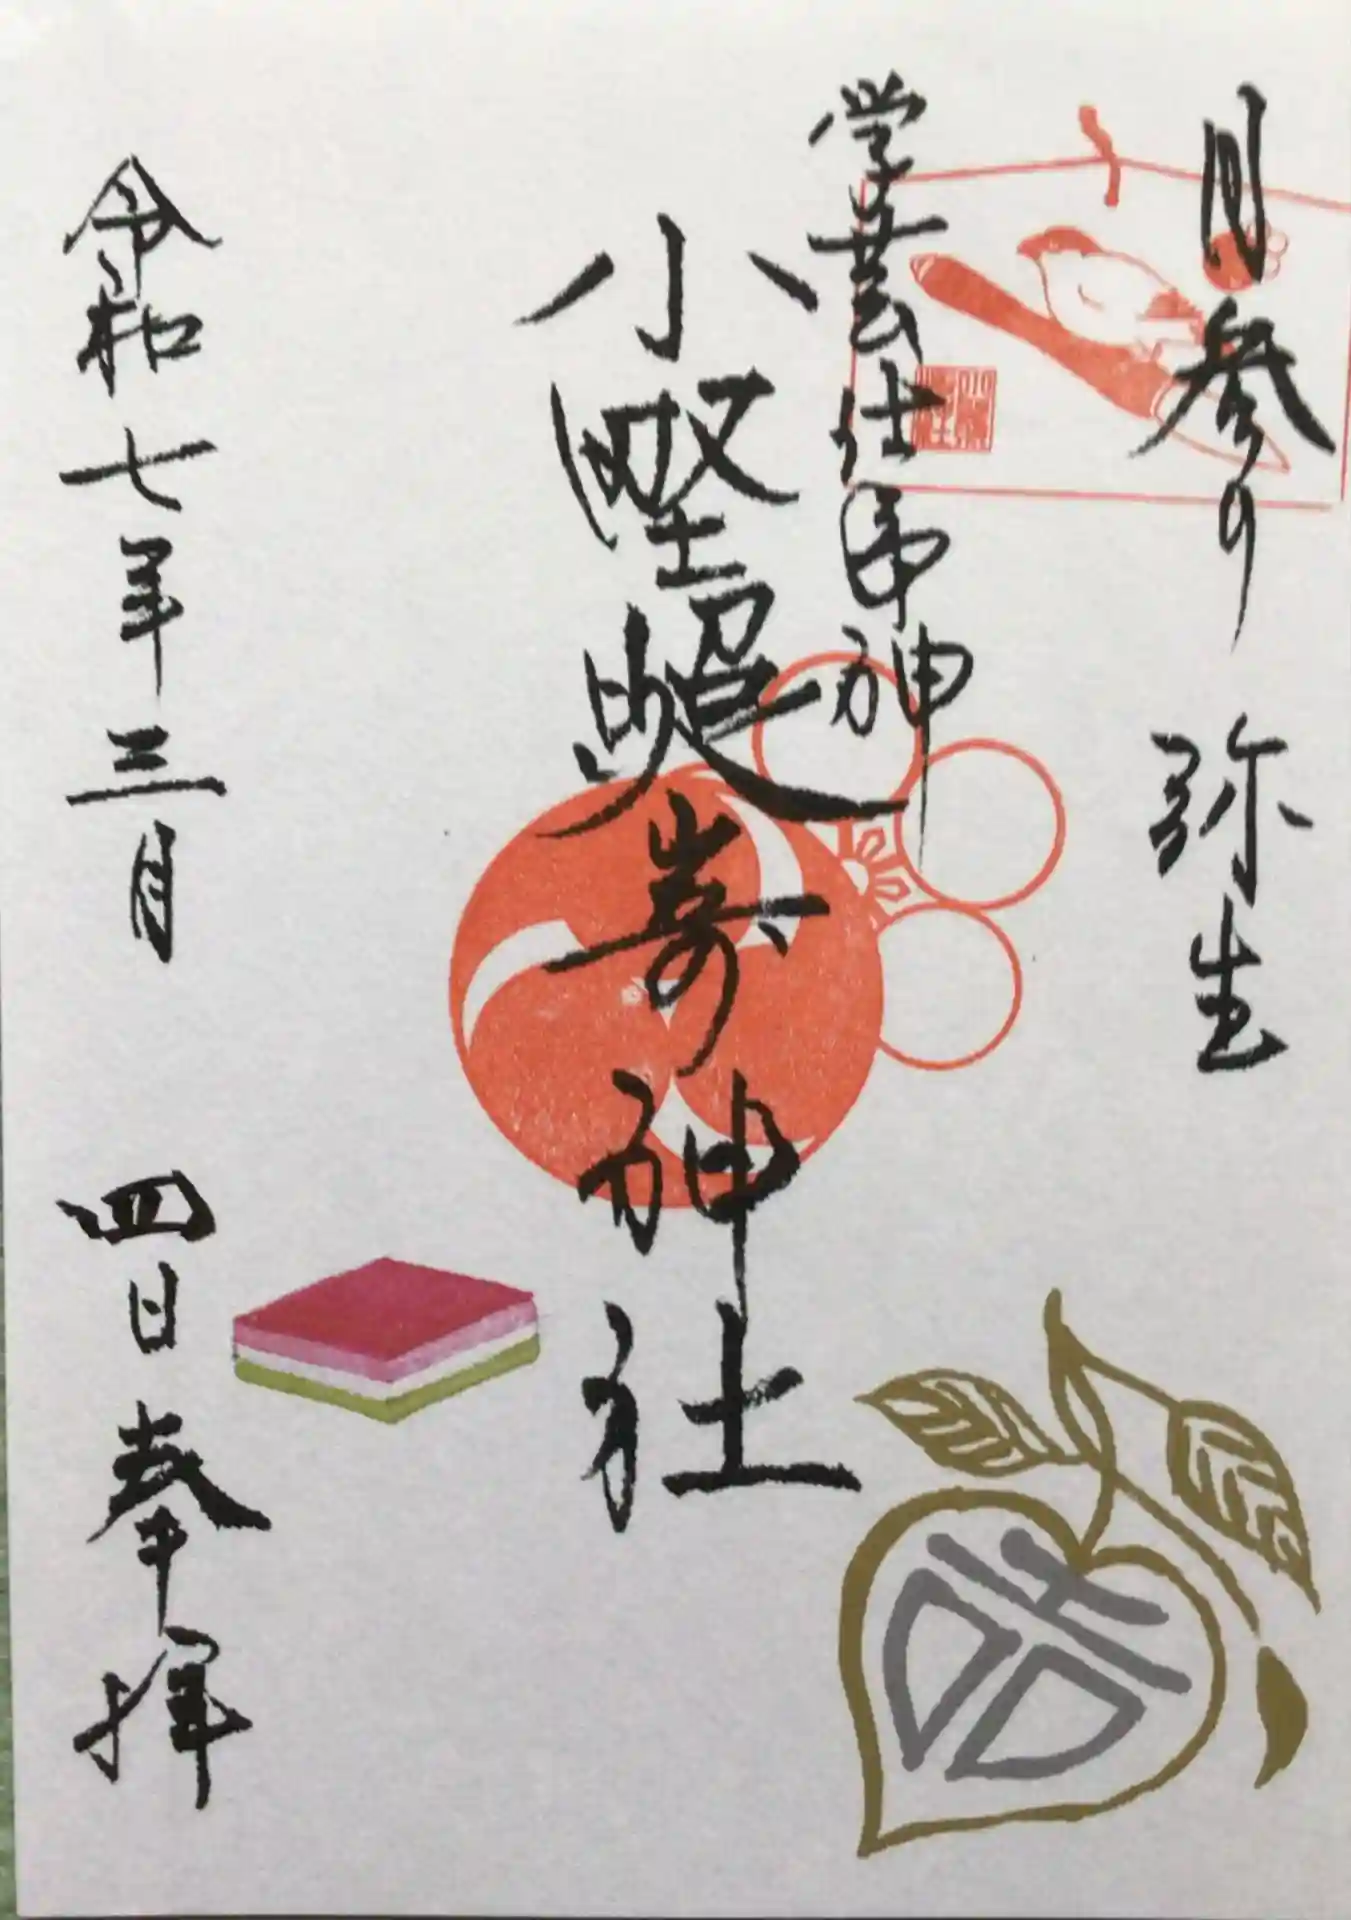 月参り 弥生
学芸仕事神
小野照嵜神社
令和七年三月 四日 奉拝